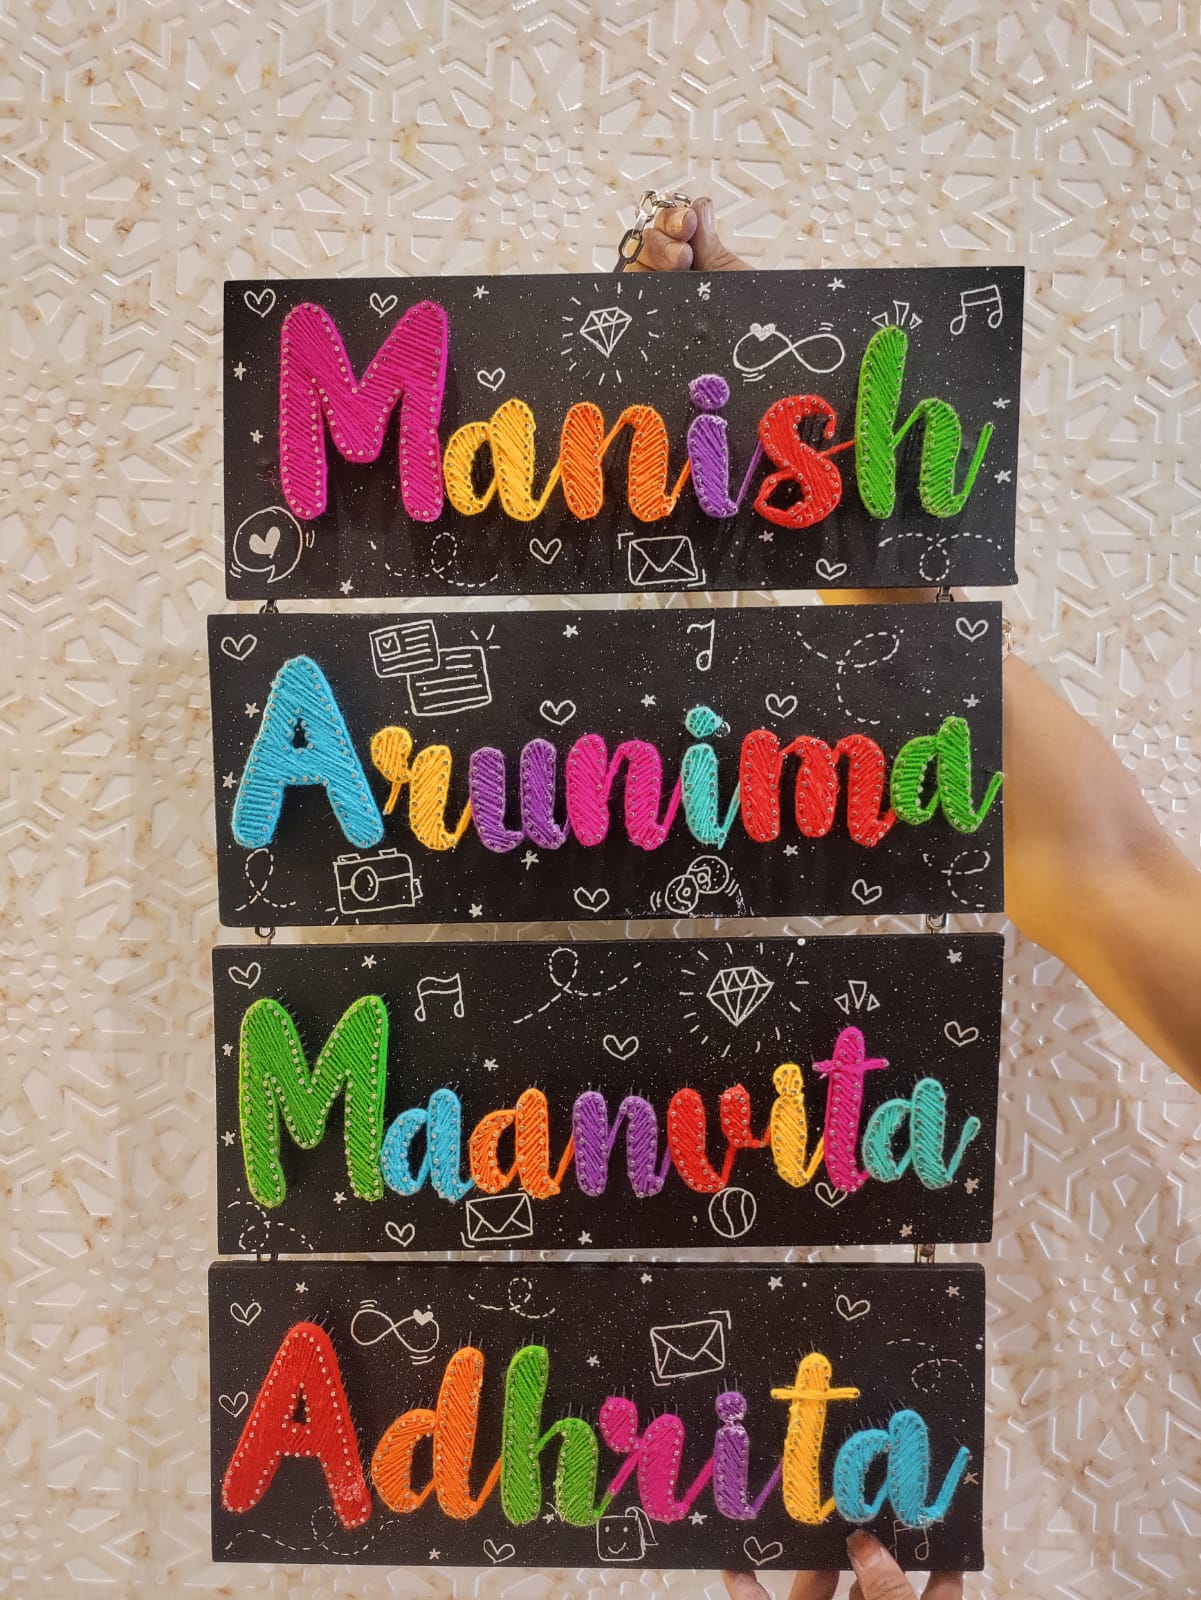 Manish
Arunima
Maanvita
Adhrita